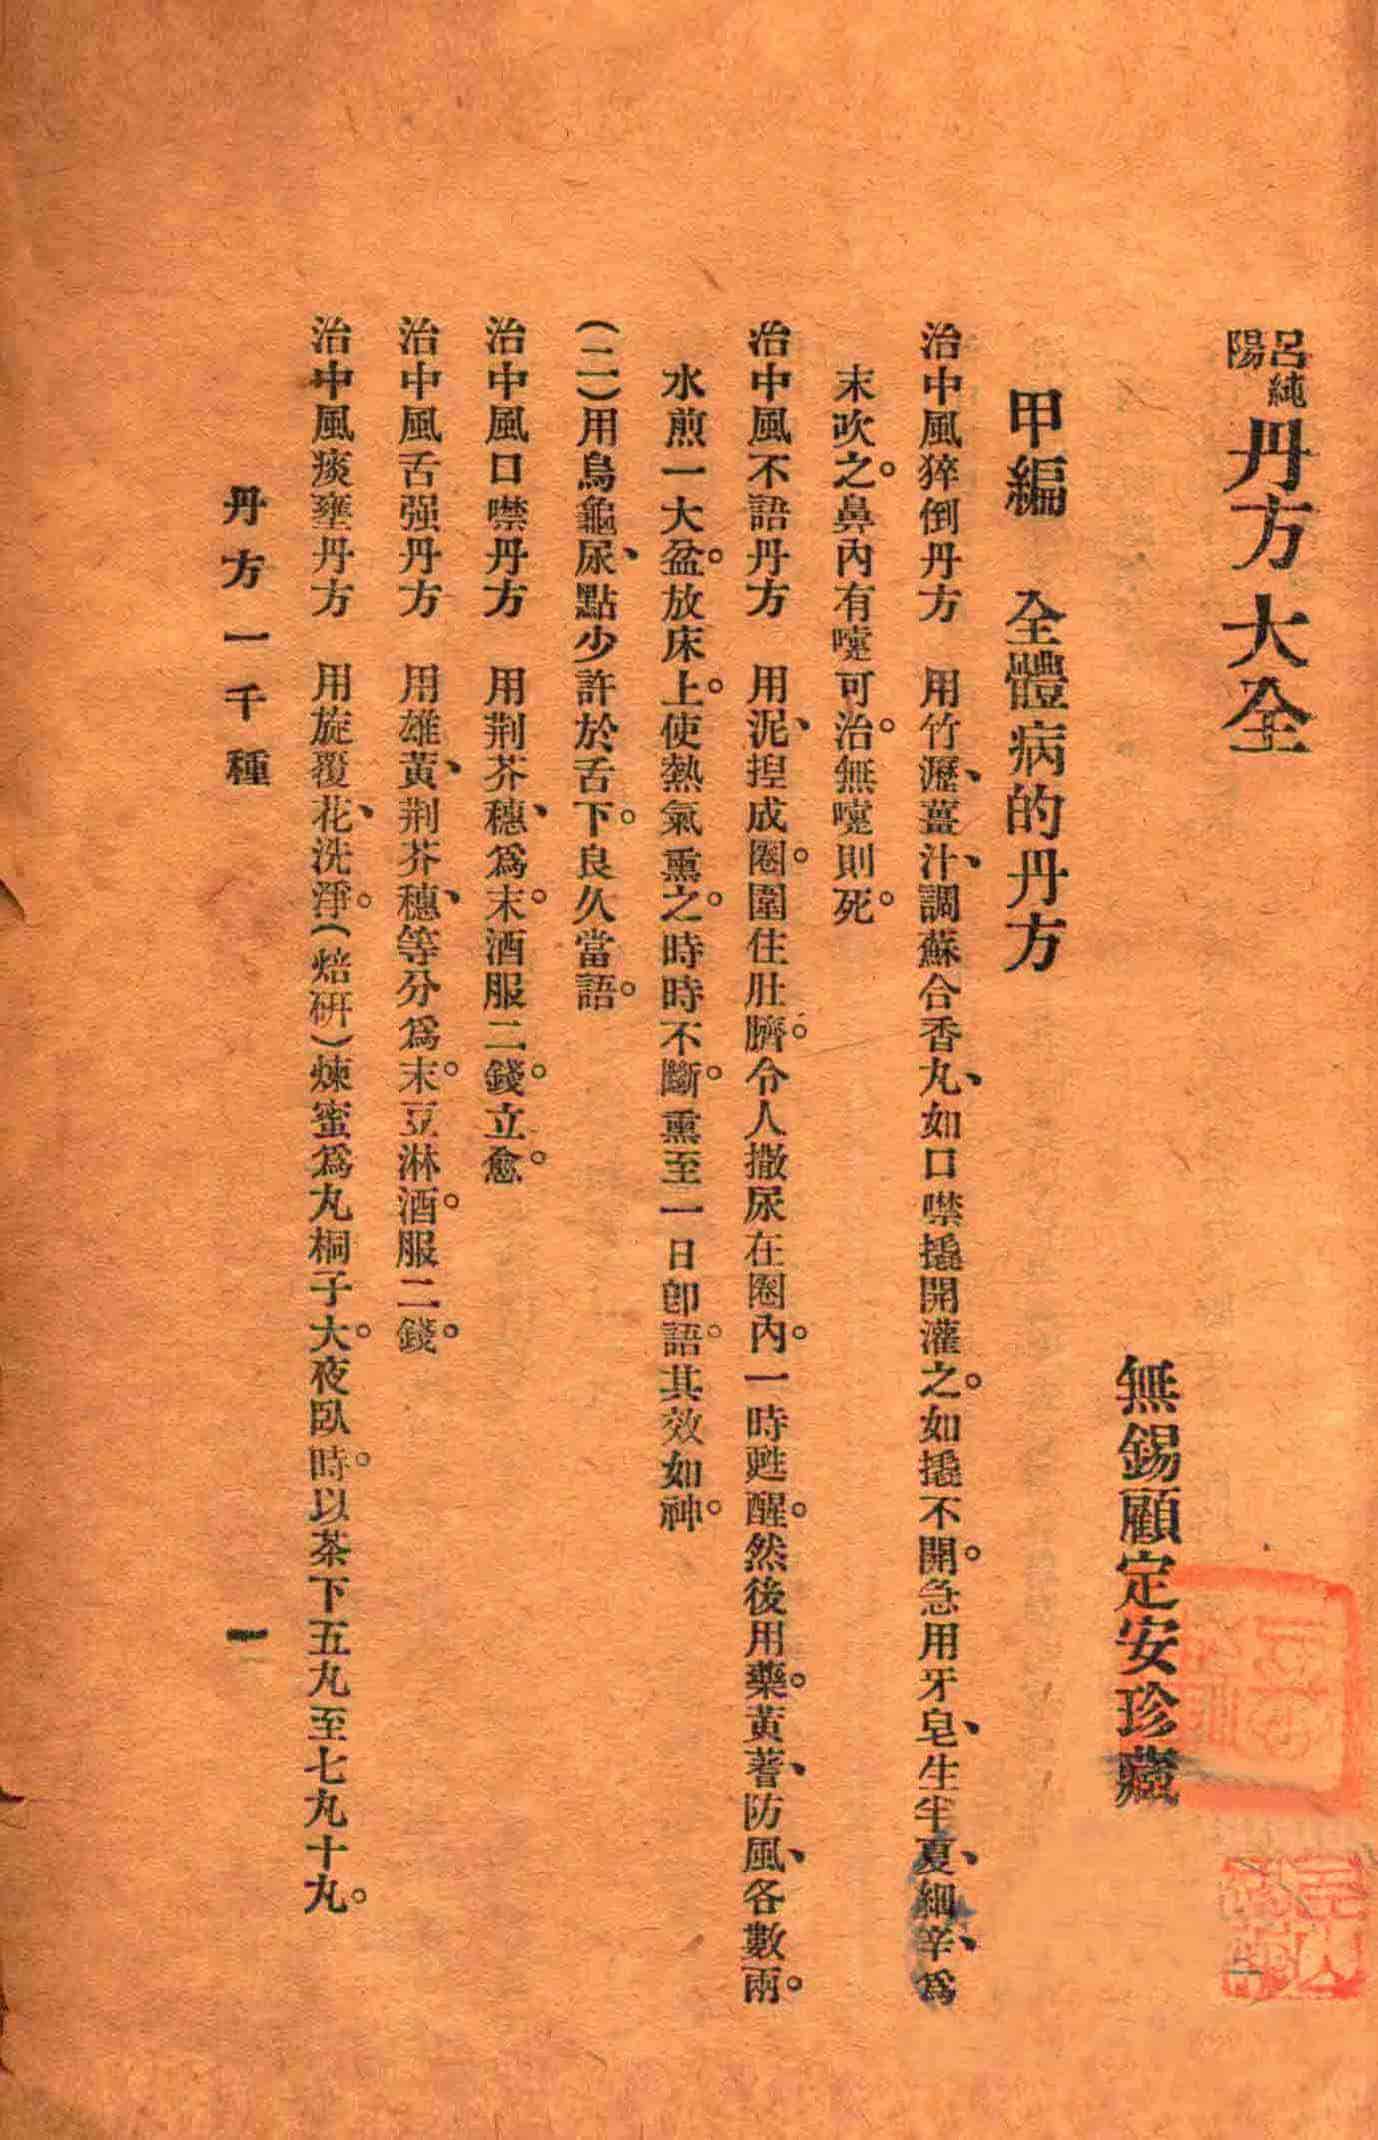 呂純陽丹方大全
無錫顧定安珍藏
甲編　全體病的丹方
治中風猝倒丹方　用竹瀝、薑汁、調蘇合香丸、如口噤撬開灌之。如撬不開。急用牙皂、生半夏、細辛、爲
末吹之。鼻內有嚏可治。無嚏則死。
治中風不語丹方　用泥、揑成圈。圍住肚臍。令人撒尿在圈內。一時甦醒。然後用藥。黃蓍、防風、各數兩。
水煎一大盆。放床上。使熱氣熏之。時時不斷。熏至一日卽語。其效如神。
（二）用烏龜尿、點少許於舌下。良久當語。
治中風口噤丹方　用荆芥穗、爲末。酒服二錢。立愈。
治中風舌强丹方　用雄黃、荆芥穗、等分爲末。豆淋酒。服二錢。
治中風痰壅丹方　用旋覆花、洗淨。（焙硏）煉蜜爲丸桐子大。夜臥時。以茶下五丸至七丸十丸。
丹方一千種
一